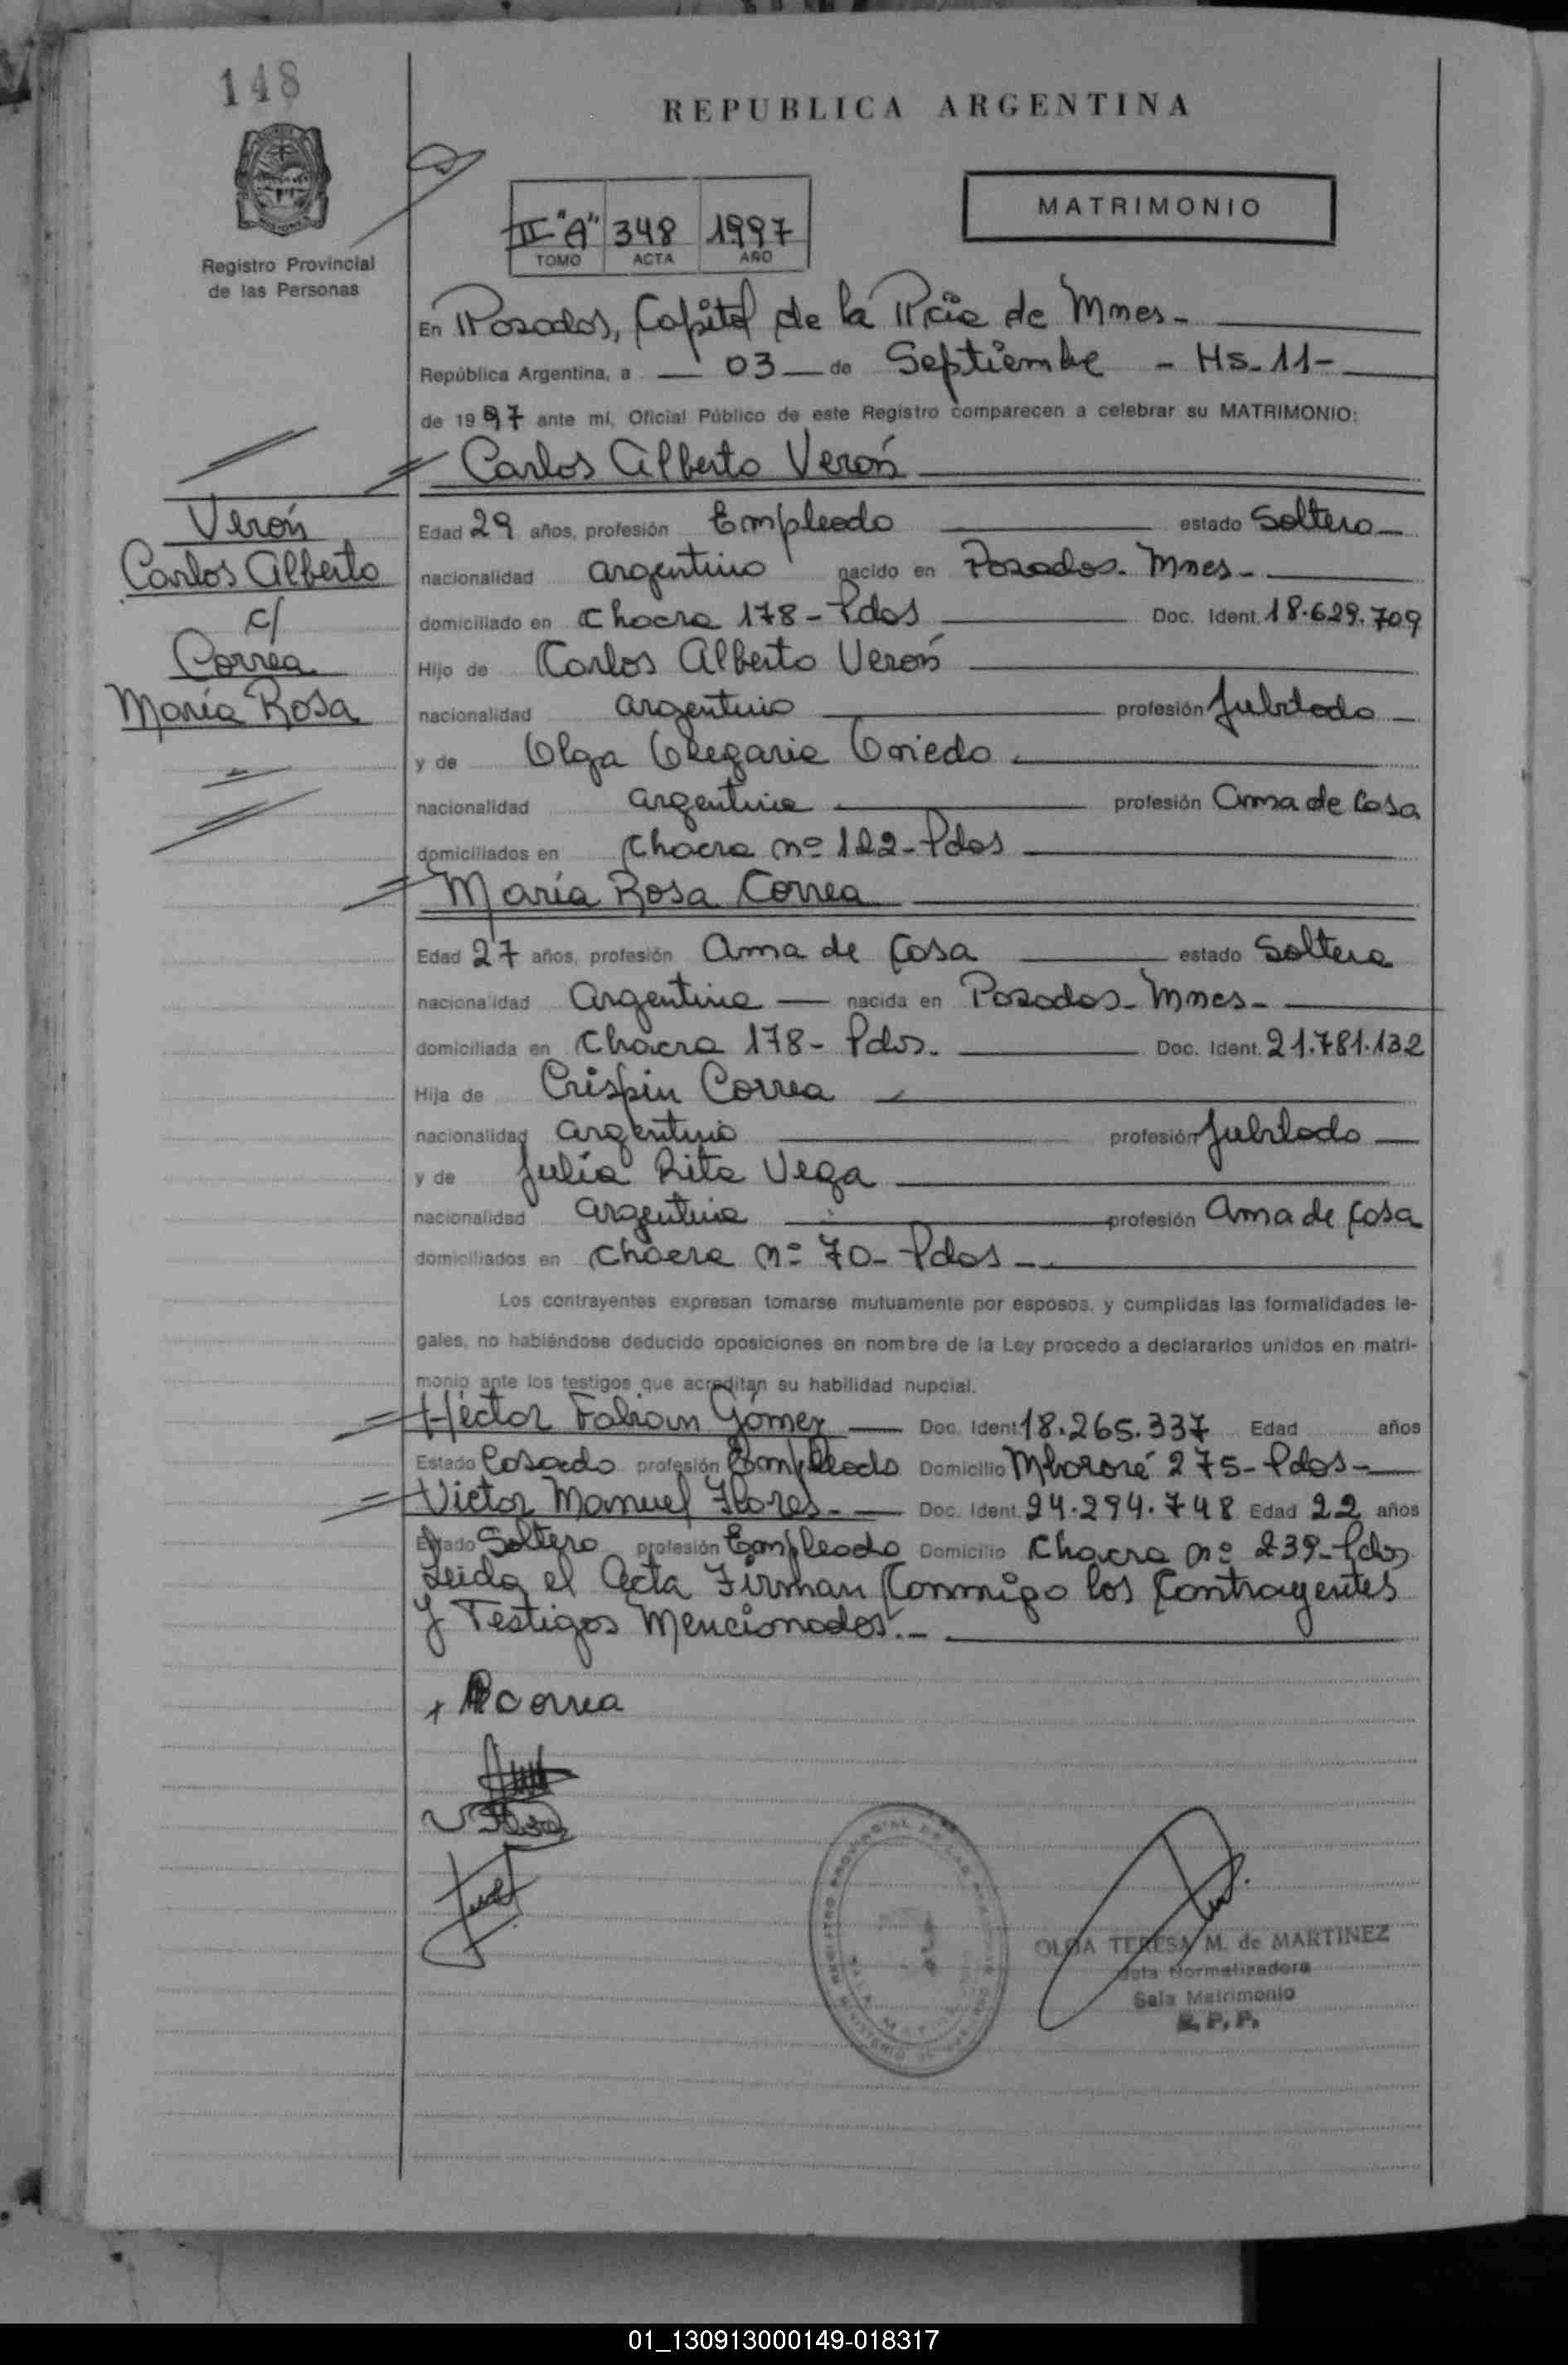 148
REPUBLICA ARGENTINA
MATRIMONIO
II "A" 348 1997
TOMO ACTA AÑO
Registro Provincial
de las Personas
En Posadas, Capital de la Pcia de Mnes-
República Argentina, a 03 de Septiembre - Hs. 11-
de 1997 ante mí, Oficial Público de este Registro comparecen a celebrar su MATRIMONIO:
Carlos Alberto Verón
Verón
Carlos Alberto
c/
Correa
María Rosa
Edad 29 años, profesión Empleado estado Soltero
nacionalidad argentino nacido en Posadas. Mnes-
domiciliado en Chacra 178 - Pdas Doc. Ident. 18.629.709
Hijo de Carlos Alberto Verón
nacionalidad argentino profesión Jubilado
y de Olga Olegaria Oviedo
nacionalidad argentina profesión Ama de Casa
domiciliados en Chacra nº 122 - Pdas
María Rosa Correa
Edad 27 años, profesión Ama de Casa estado Soltera
nacionalidad Argentina nacida en Posadas - Mnes-
domiciliada en Chacra 178 - Pdas. Doc. Ident. 21.781.132
Hija de Crispin Correa
nacionalidad argentino profesión Jubilado
y de Julia Rita Vega
nacionalidad argentina profesión Ama de Casa
domiciliados en Chacra nº 70 - Pdas -
Los contrayentes expresan tomarse mutuamente por esposos, y cumplidas las formalidades le-
gales, no habiéndose deducido oposiciones en nombre de la Ley procedo a declararlos unidos en matri-
monio ante los testigos que acreditan su habilidad nupcial.
Héctor Fabian Gómez Doc. Ident. 18.265.337 Edad años
Estado Casado profesión Empleado Domicilio Mbororé 275 - Pdas -
Victor Manuel Flores. Doc. Ident. 24.294.748 Edad 22 años
Estado Soltero profesión Empleado Domicilio Chacra nº 239 - Pdas
Leida el Acta Firman Conmigo los Contrayentes
y Testigos Mencionados.-
RCorrea
OLGA TERESA M. de MARTINEZ
Jefa Normalizadora
Sala Matrimonio
R. P. P.
01_130913000149-018317